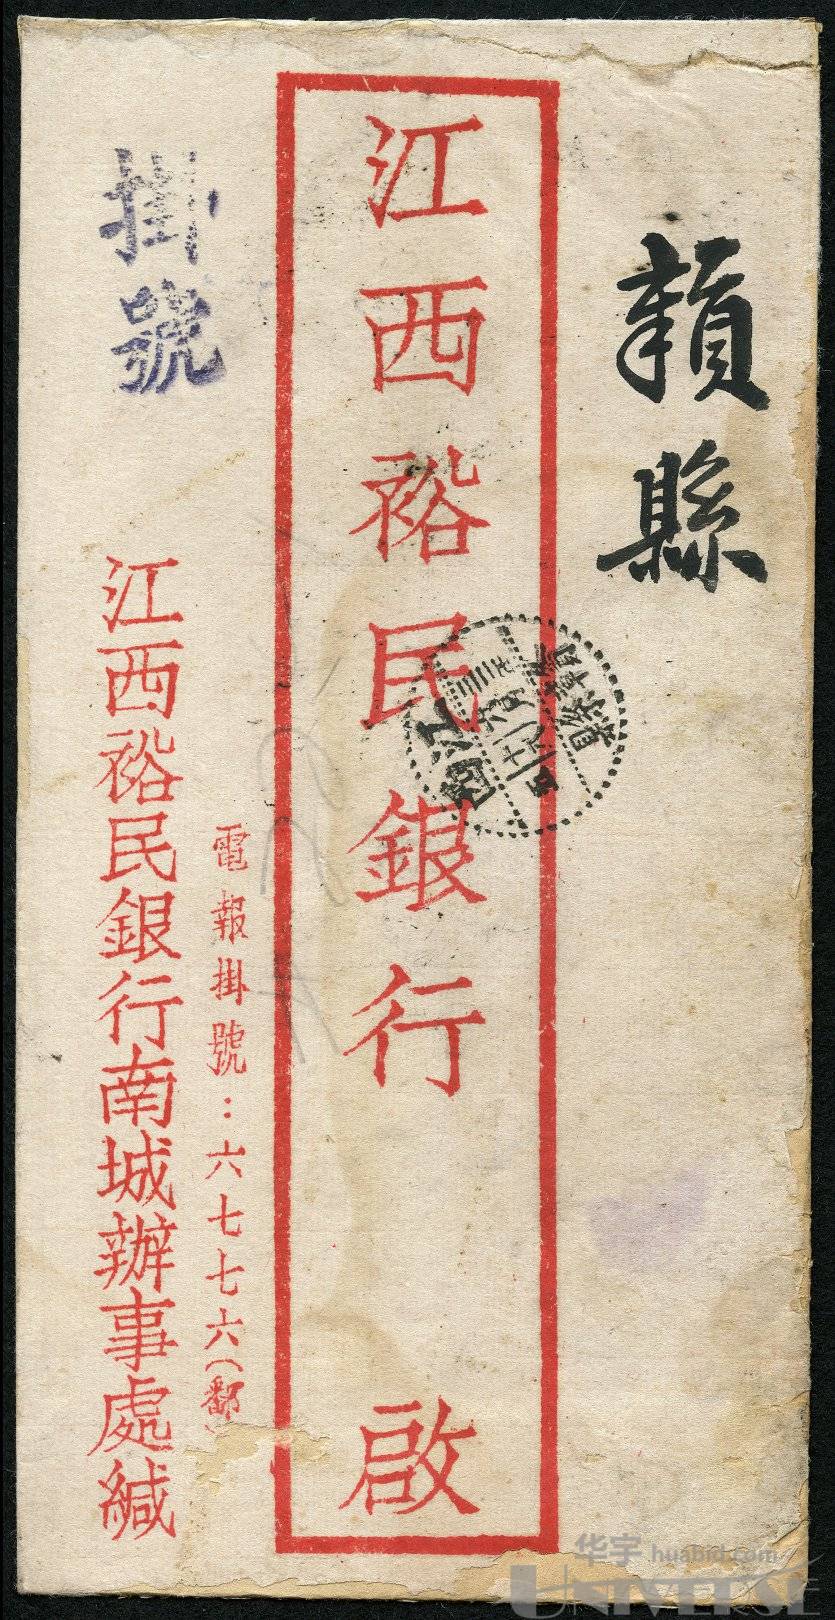 贛縣
江西裕民銀行 啟
掛號
電報掛號：六七七六（鄱）
江西裕民銀行南城辦事處緘
江西
贛縣
华宇 huabid.com
UNIVERSE